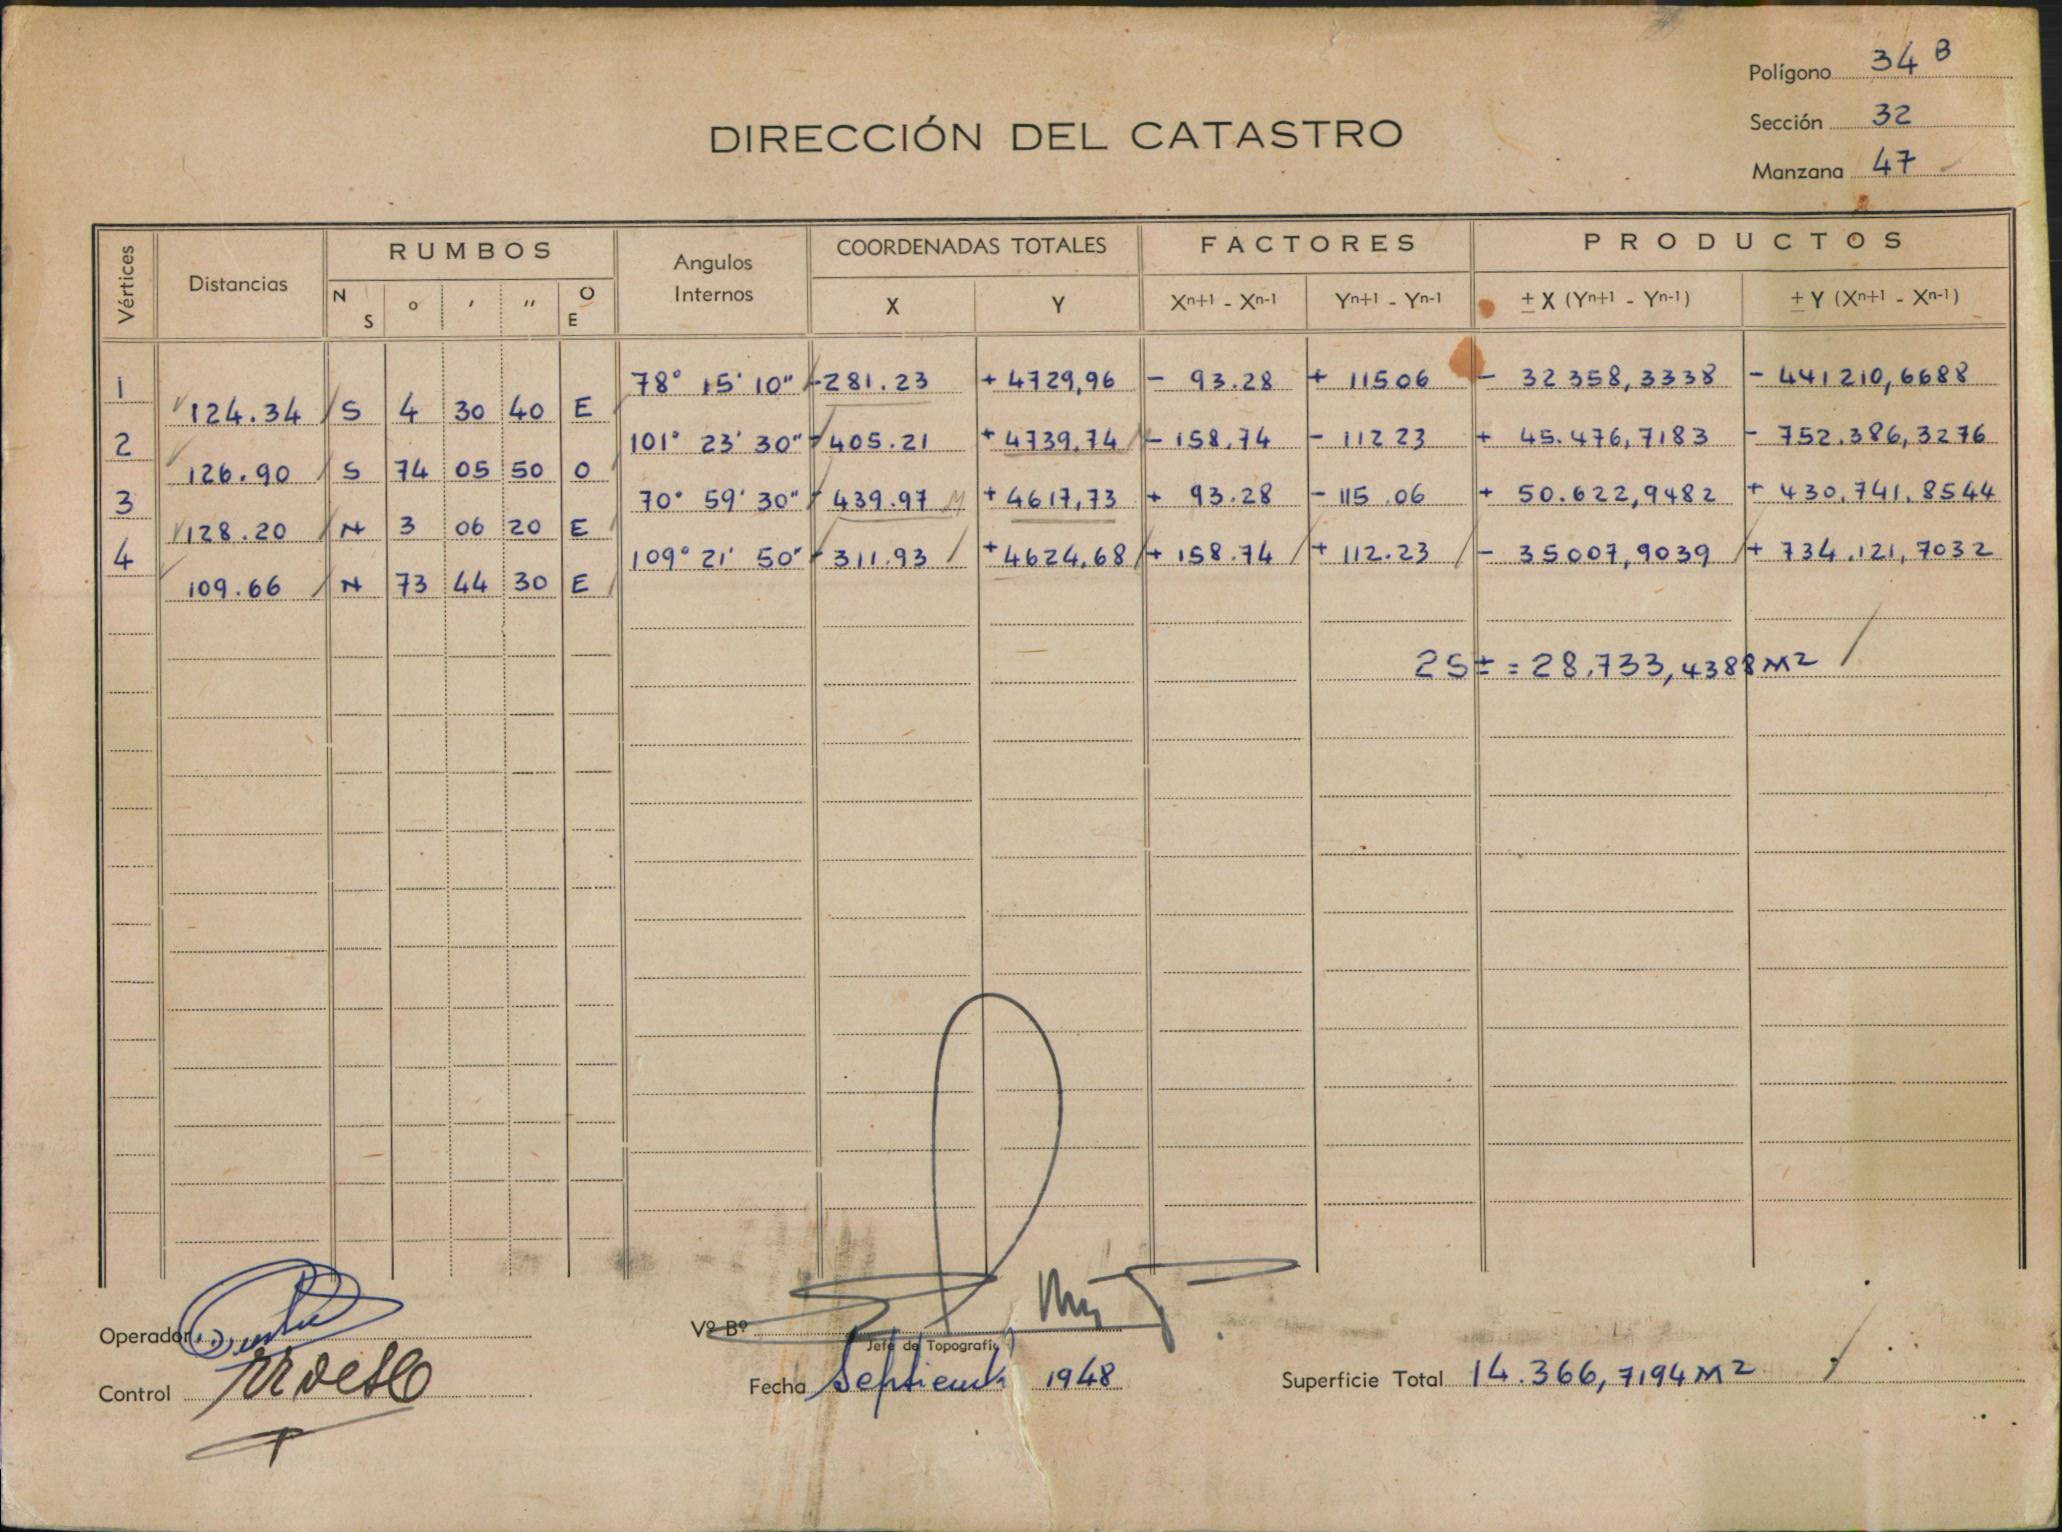 Polígono 34 B
Sección 32
Manzana 47
DIRECCIÓN DEL CATASTRO
Vértices Distancias RUMBOS Angulos Internos COORDENADAS TOTALES FACTORES PRODUCTOS
N S ° ' '' O E X Y Xn+1 - Xn-1 Yn+1 - Yn-1 ± X (Yn+1 - Yn-1) ± Y (Xn+1 - Xn-1)
1 78° 15' 10" -281.23 + 4729,96 - 93.28 + 11506 - 32358,3338 - 441210,6688
124.34 S 4 30 40 E
2 101° 23' 30" - 405.21 + 4739,74 - 158.74 - 11223 + 45.476,7183 - 752.386,3276
126.90 S 74 05 50 O
3 70° 59' 30" - 439.97 + 4617,73 + 93.28 - 115.06 + 50.622,9482 + 430.741.8544
128.20 N 3 06 20 E
4 109° 21' 50" - 311.93 + 4624,68 + 158.74 + 112.23 - 35007,9039 + 734.121,7032
109.66 N 73 44 30 E
2S± = 28.733,4388 M2
Operador
Vº Bº
Jefe de Topografia
Control
Fecha Septiembre 1948
Superficie Total 14.366,7194 M2